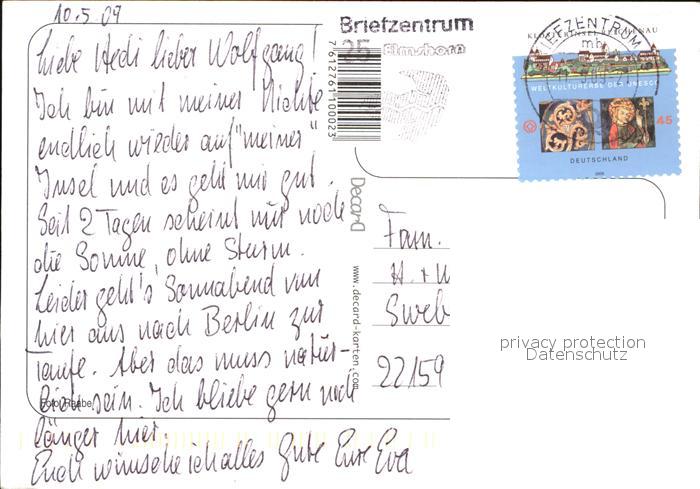 10.5.09
Liebe Hedi lieber Wolfgang!
Ich bin mit meiner Nichte
endlich wieder auf "meiner"
Insel und es geht mir gut.
Seit 2 Tagen scheint nur noch
die Sonne, ohne Sturm.
Leider geht's Sonnabend von
hier aus nach Berlin zur
Taufe. Aber das muss natür-
lich sein. Ich bliebe gern noch
länger hier.
Euch wünsche ich alles Gute Eure Eva
Foto: Raabe
Briefzentrum
25 Elmshorn
7612761100023
Decard
www.decard-karten.com
Fam.
H. + W
Sweb
22159
privacy protection
Datenschutz
KLOSTERINSEL REICHENAU
BRIEFZENTRUM
mb
WELTKULTURERBE DER UNESCO
45
DEUTSCHLAND